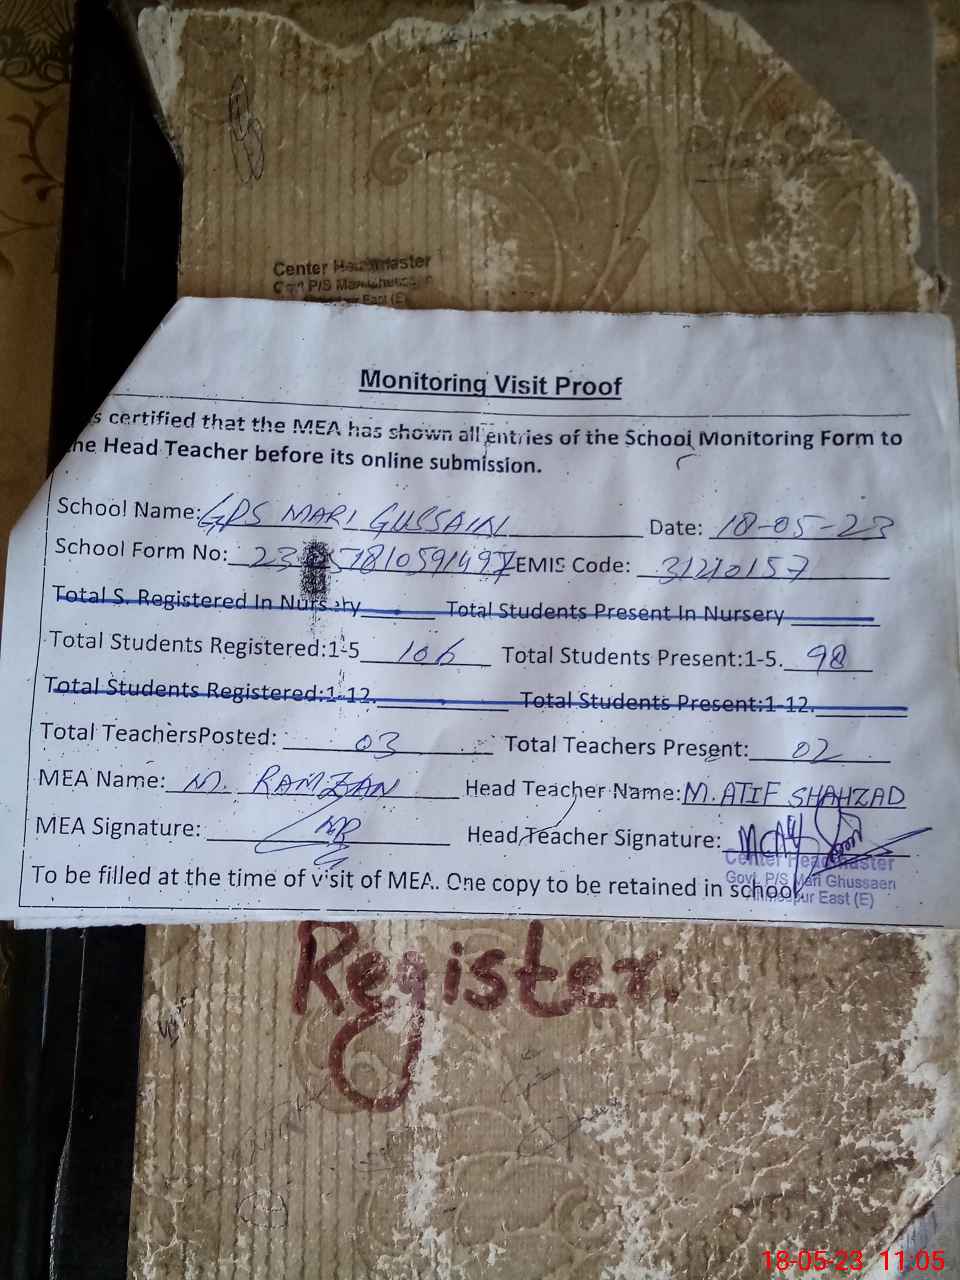 Center Headmaster
P/S
East (E)
Monitoring Visit Proof
s certified that the MEA has shown all entries of the School Monitoring Form to
he Head Teacher before its online submission.
School Name: GPS MARI GUSSAIN Date: 18-05-23
School Form No: 23 57810591497 EMIS Code: 31210157
Total S. Registered In Nursery Total Students Present In Nursery
Total Students Registered:1-5 106 Total Students Present:1-5. 98
Total Students Registered:1-12. Total Students Present:1-12.
Total TeachersPosted: 03 Total Teachers Present: 02
MEA Name: M. RAMZAN Head Teacher Name: M. ATIF SHAHZAD
MEA Signature: Head Teacher Signature:
Center Headmaster
To be filled at the time of visit of MEA.. One copy to be retained in school.
Govt. P/S Mari Ghussaen
East (E)
Register.
18-05-23 11:05